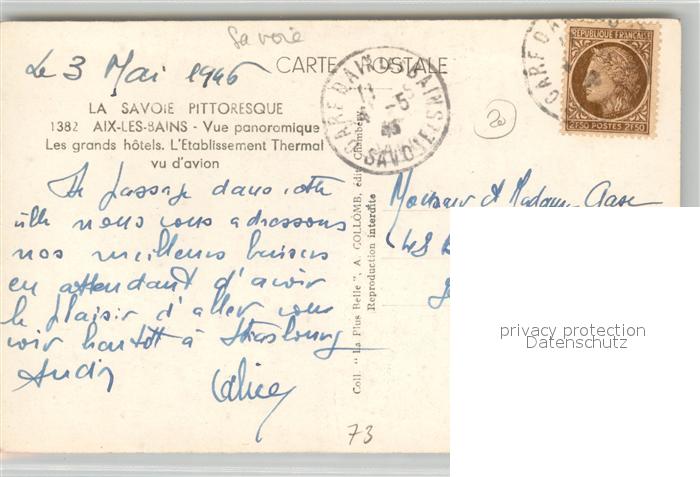 Savoie
Le 3 Mai 1946
CARTE POSTALE
LA SAVOIE PITTORESQUE
1382 AIX-LES-BAINS - Vue panoramique
Les grands hôtels. L'Etablissement Thermal
vu d'avion
GARE D'AIX-LES-BAINS
-5
SAVOIE
GARE D'A
REPUBLIQUE FRANÇAISE
2F50 POSTES 2F50
20
De passage dans cette
ville nous vous adressons
nos meilleurs baisers
en attendant d'avoir
le plaisir d'aller vous
voir bientôt à Strasbourg
André
Alice
Coll. "La Plus Belle", A. COLLOMB, édit. Chambéry
Reproduction interdite
Monsieur et Madame
48
73
privacy protection
Datenschutz